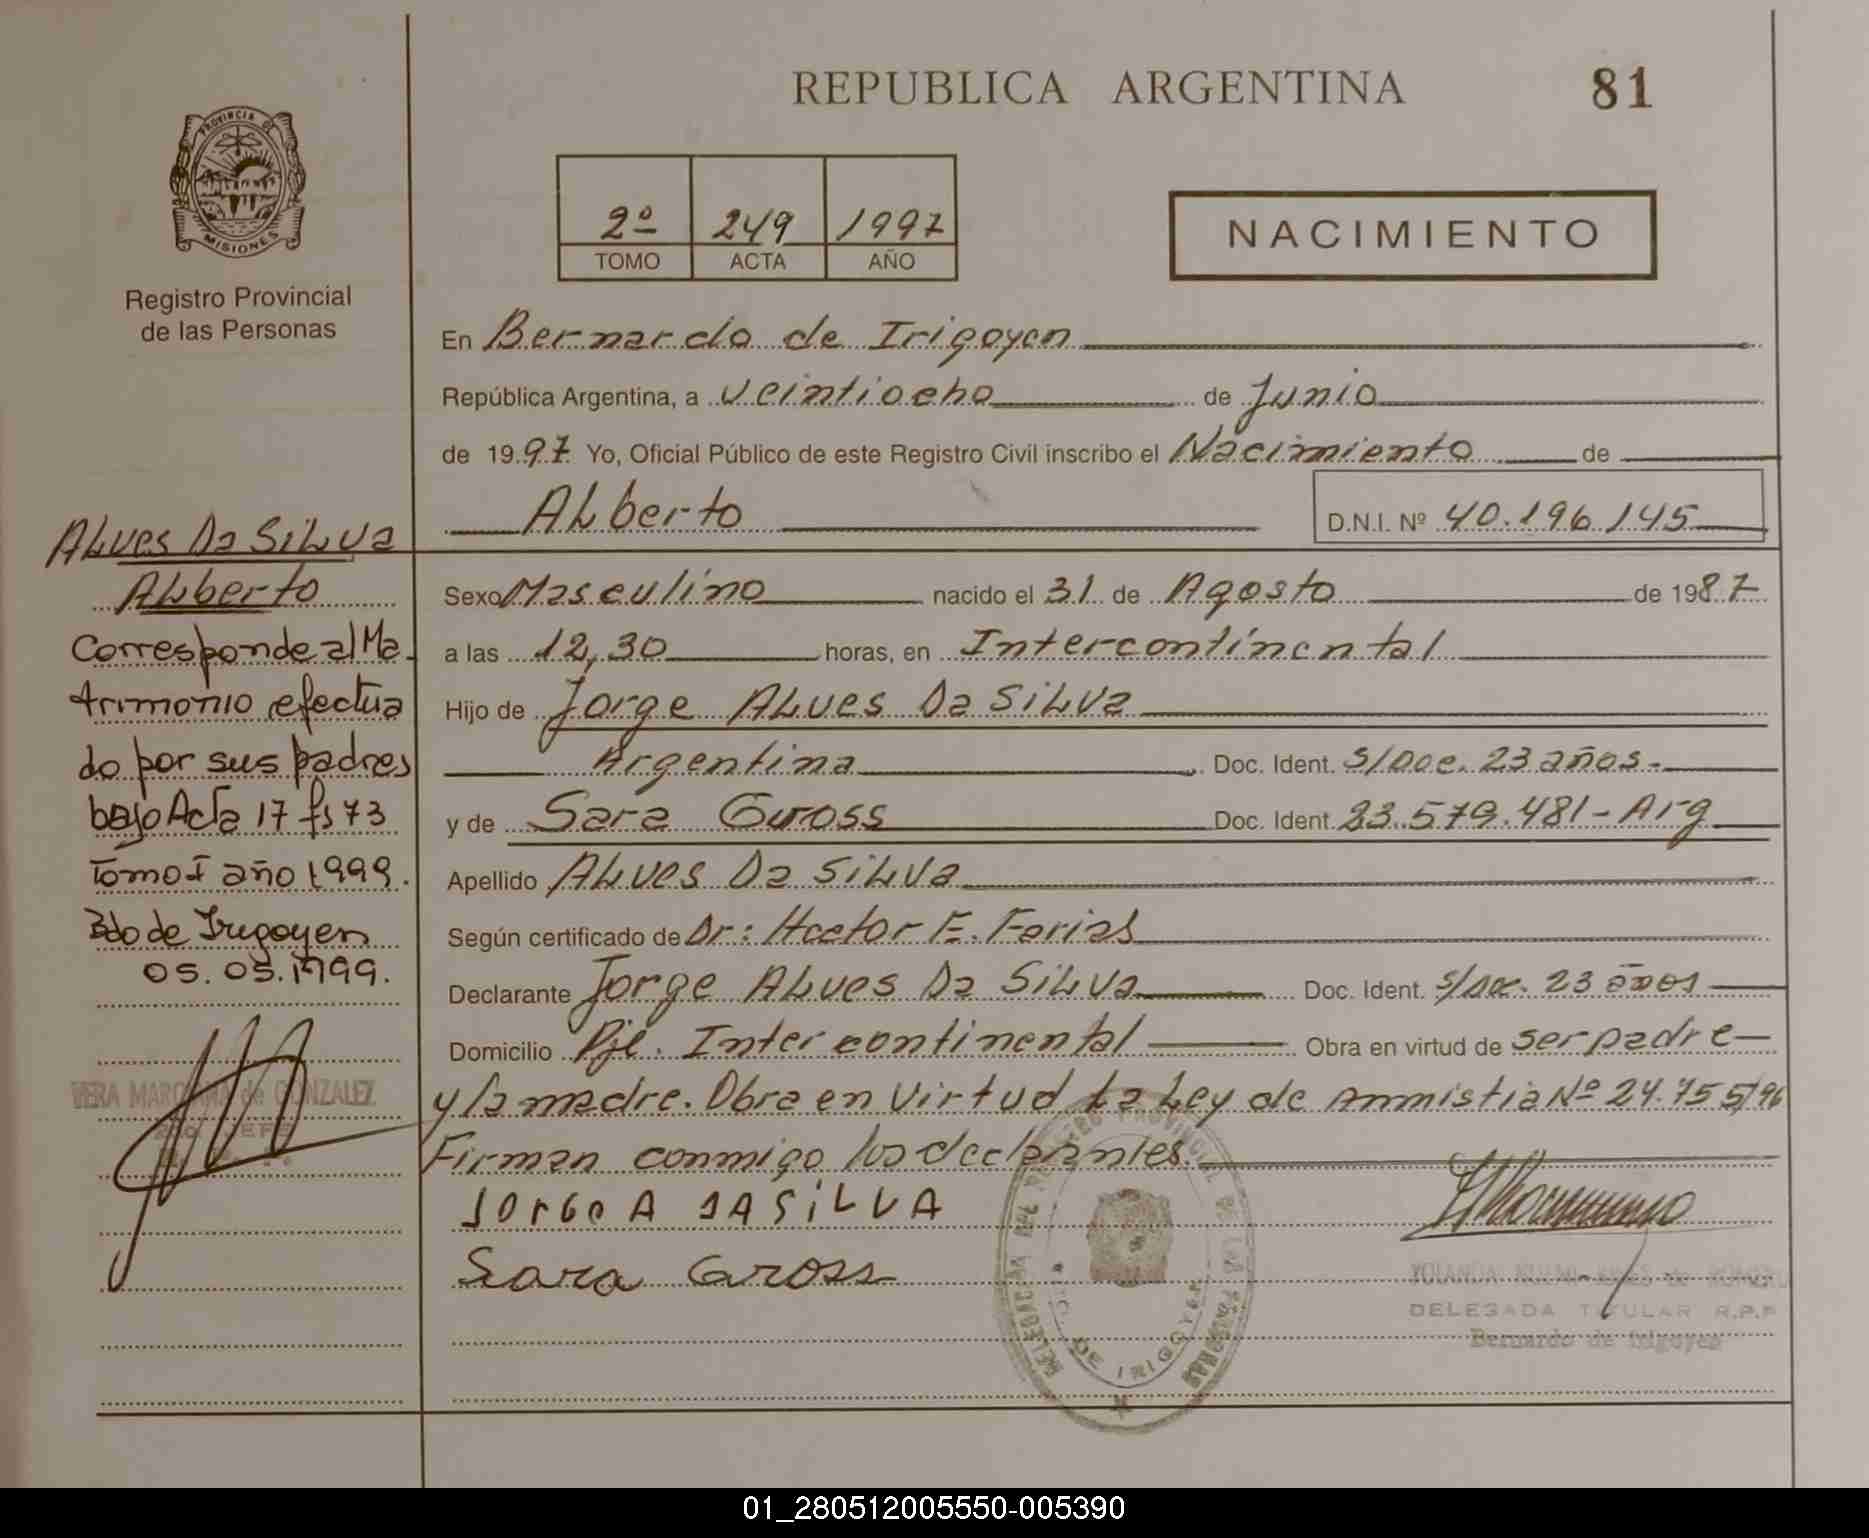 REPUBLICA ARGENTINA
81
PROVINCIA DE
MISIONES
Registro Provincial
de las Personas
2º 249 1997
TOMO ACTA AÑO
NACIMIENTO
En Bernardo de Irigoyen
República Argentina, a veintiocho de Junio
de 1997 Yo, Oficial Público de este Registro Civil inscribo el Nacimiento de
Alberto D.N.I. Nº 40.196.145
Sexo Masculino nacido el 31 de Agosto de 1987
a las 12,30 horas, en Intercontinental
Hijo de Jorge Alves Da Silva
Argentina Doc. Ident. S/Doc. 23 años.-
y de Sara Gross Doc. Ident 23.579.481 - Arg
Apellido Alves Da Silva
Según certificado de Dr: Hector E. Farias
Declarante Jorge Alves Da Silva Doc. Ident. S/doc. 23 años
Domicilio Pje. Intercontinental Obra en virtud de ser padre
y la madre. Obra en Virtud La Ley de Anmistia Nº 24.755/96
Firman conmigo los declarantes.
JORGE A DA SiLVA
Sara Gross
Alves Da Silva
Alberto
Corresponde al Ma-
trimonio efectua
do por sus padres
bajo Acta 17 fs 73
Tomo I año 1999.
Bdo de Irigoyen
05.05.1999.
VERA MARCIANA de GONZALEZ
JEFE
DELEGACION DEL REGISTRO PROVINCIAL DE LAS PERSONAS
BDO. DE IRIGOYEN
YOLANDA de ROMERO
DELEGADA TITULAR R.P.P
Bernardo de Irigoyen
01_280512005550-005390